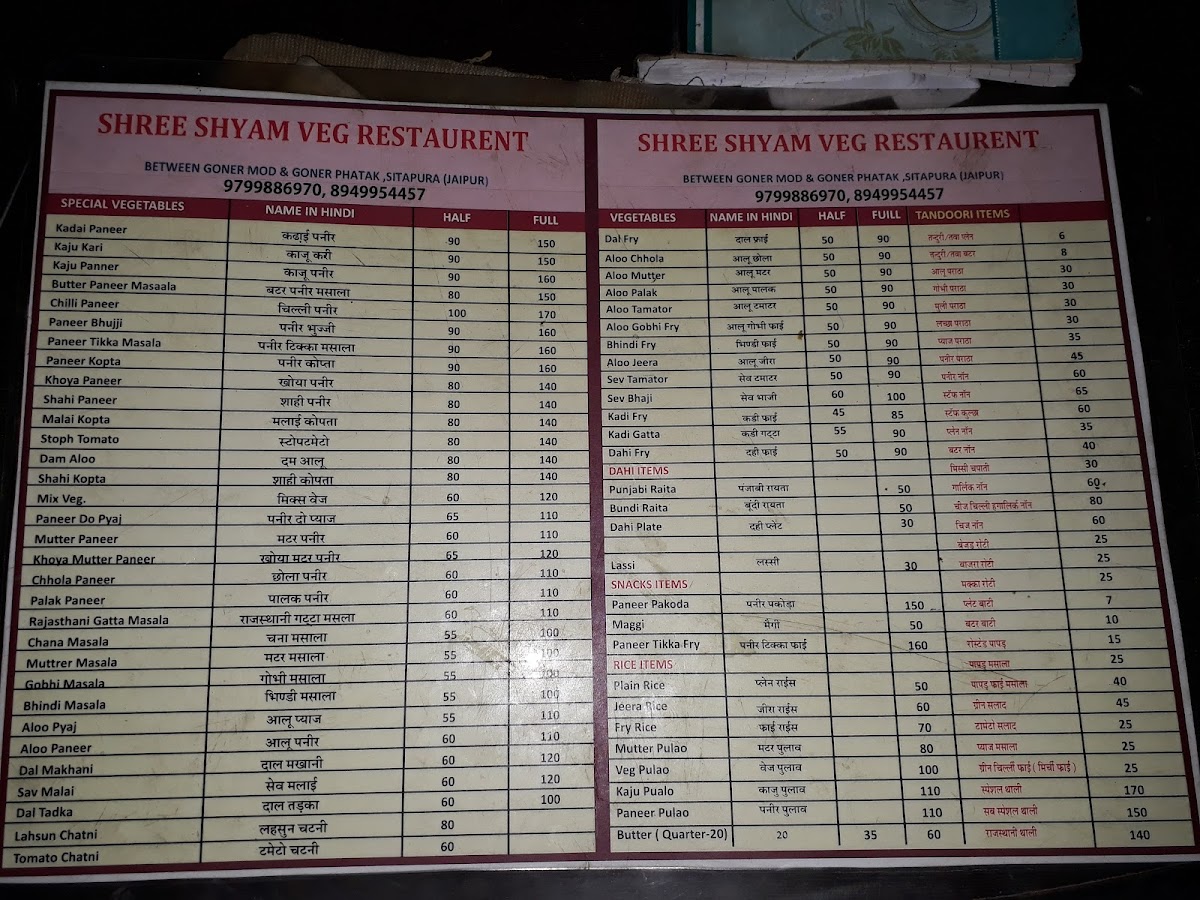 SHREE SHYAM VEG RESTAURENT
BETWEEN GONER MOD & GONER PHATAK ,SITAPURA (JAIPUR)
9799886970, 8949954457
SPECIAL VEGETABLES NAME IN HINDI HALF FULL
Kadai Paneer कढाई पनीर 90 150
Kaju Kari काजू करी 90 150
Kaju Panner काजू पनीर 90 160
Butter Paneer Masaala बटर पनीर मसाला 80 150
Chilli Paneer चिल्ली पनीर 100 170
Paneer Bhujji पनीर भुज्जी 90 160
Paneer Tikka Masala पनीर टिक्का मसाला 90 160
Paneer Kopta पनीर कोप्ता 90 160
Khoya Paneer खोया पनीर 80 140
Shahi Paneer शाही पनीर 80 140
Malai Kopta मलाई कोपता 80 140
Stoph Tomato स्टोपटमेटो 80 140
Dam Aloo दम आलू 80 140
Shahi Kopta शाही कोपता 80 140
Mix Veg. मिक्स वेज 60 120
Paneer Do Pyaj पनीर दो प्याज 65 110
Mutter Paneer मटर पनीर 60 110
Khoya Mutter Paneer खोया मटर पनीर 65 120
Chhola Paneer छोला पनीर 60 110
Palak Paneer पालक पनीर 60 110
Rajasthani Gatta Masala राजस्थानी गट्टा मसला 60 110
Chana Masala चना मसाला 55 100
Muttrer Masala मटर मसाला 55 100
Gobhi Masala गोभी मसाला 55 100
Bhindi Masala भिण्डी मसाला 55 100
Aloo Pyaj आलू प्याज 55 110
Aloo Paneer आलू पनीर 60 110
Dal Makhani दाल मखानी 60 120
Sav Malai सेव मलाई 60 120
Dal Tadka दाल तड़का 60 100
Lahsun Chatni लहसुन चटनी 80
Tomato Chatni टमेटो चटनी 60
SHREE SHYAM VEG RESTAURENT
BETWEEN GONER MOD & GONER PHATAK ,SITAPURA (JAIPUR)
9799886970, 8949954457
VEGETABLES NAME IN HINDI HALF FUILL TANDOORI ITEMS
Dal Fry दाल फ्राई 50 90 तन्दुरी/तवा प्लेन 6
Aloo Chhola आलू छोला 50 90 तन्दुरी/तवा बटर 8
Aloo Mutter आलू मटर 50 90 आलू पराठा 30
Aloo Palak आलू पालक 50 90 गोभी पराठा 30
Aloo Tamator आलू टमाटर 50 90 मुली पराठा 30
Aloo Gobhi Fry आलू गोभी फाई 50 90 लच्छा पराठा 30
Bhindi Fry भिण्डी फाई 50 90 प्याज पराठा 35
Aloo Jeera आलू जीरा 50 90 पनीर पराठा 45
Sev Tamator सेव टमाटर 50 90 पनीर नॉन 60
Sev Bhaji सेव भाजी 60 100 स्टॅफ नॉन 65
Kadi Fry कडी फाई 45 85 स्टॅफ कुल्छा 60
Kadi Gatta कडी गट्टा 55 90 प्लेन नॉन 35
Dahi Fry दही फाई 50 90 बटर नॉन 40
DAHI ITEMS मिस्सी चपाती 30
Punjabi Raita पंजाबी रायता 50 गार्लिक नॉन 60
Bundi Raita बूंदी रायता 50 चीज चिल्ली हगालिर्क नॉन 80
Dahi Plate दही प्लेट 30 चिज नॉन 60
बेजड़ रोटी 25
Lassi लस्सी 30 बाजरा रोटी 25
SNACKS ITEMS मक्का रोटी 25
Paneer Pakoda पनीर पकोड़ा 150 प्लेट बाटी 7
Maggi मैगी 50 बटर बाटी 10
Paneer Tikka Fry पनीर टिक्का फाई 160 रोस्टेड पापड़ 15
RICE ITEMS पापड़ मसाला 25
Plain Rice प्लेन राईस 50 पापड़ फाई मसाला 40
Jeera Rice जीरा राईस 60 ग्रीन सलाद 45
Fry Rice फाई राईस 70 टामेटो सलाद 25
Mutter Pulao मटर पुलाव 80 प्याज मसाला 25
Veg Pulao वेज पुलाव 100 ग्रीन चिल्ली फाई ( मिर्ची फाई ) 25
Kaju Pualo काजु पुलाव 110 स्पेशल थाली 170
Paneer Pulao पनीर पुलाव 110 सब स्पेशल थाली 150
Butter ( Quarter-20) 20 35 60 राजस्थानी थाली 140